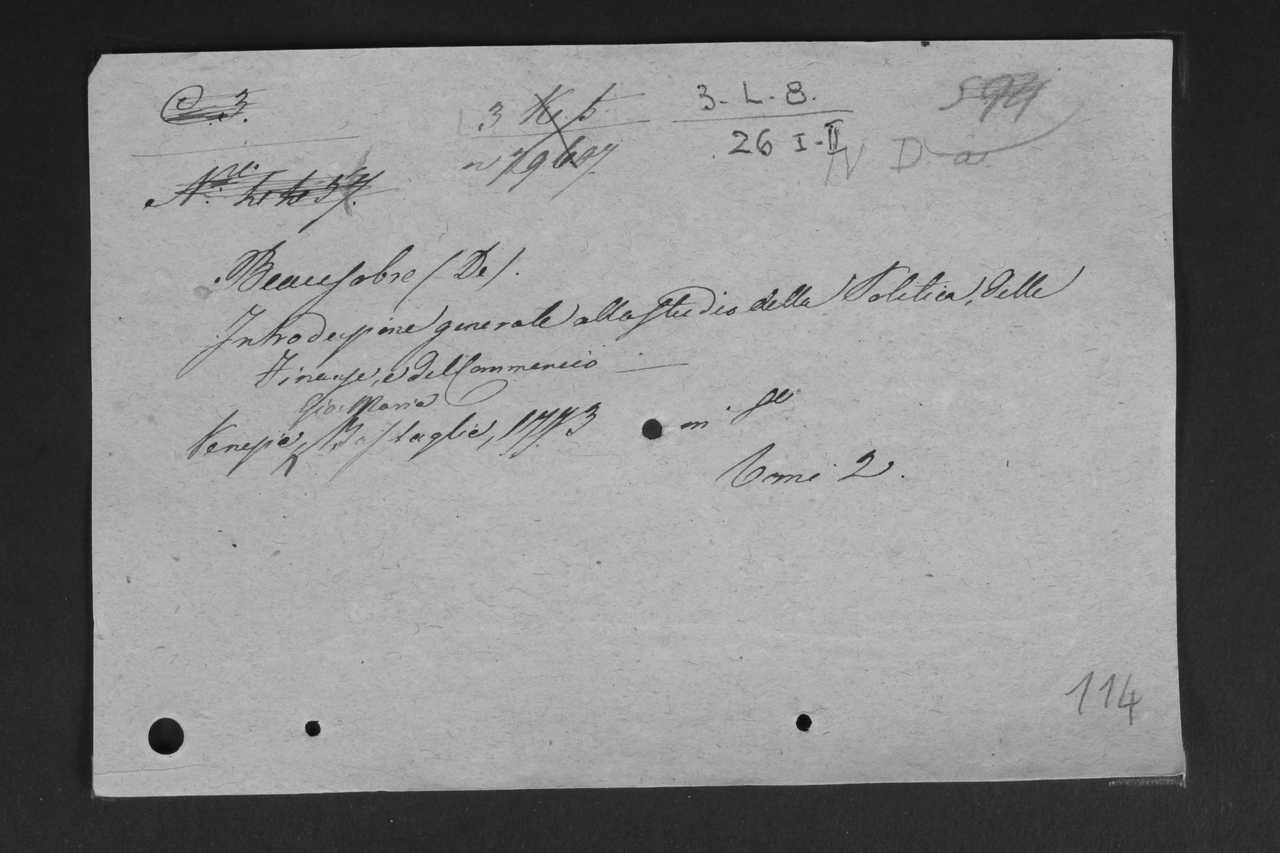 C. 3.
3 K. 5
3-L-8.
594
26 I-II
IV D a
Beausobre (De).
Introduzione generale allo studio della Politica, delle
Finanze, e del Commercio
Gio: Maria
Venezia, Bassaglia, 1773 in 8º
Tomi 2.
114